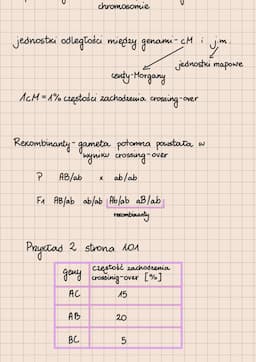 chromosomie
jednostki odległości między genami - cM i j.m.
centy-Morgany
jednostki mapowe
1cM = 1% częstości zachodzenia crossing-over
Rekombinanty - gameta potomna powstała w
wyniku crossing-over
P AB/ab x ab/ab
F1 AB/ab ab/ab Ab/ab aB/ab
rekombinanty
Przykład 2 strona 101
geny
częstość zachodzenia
crossinig-over [%]
AC 15
AB 20
BC 5